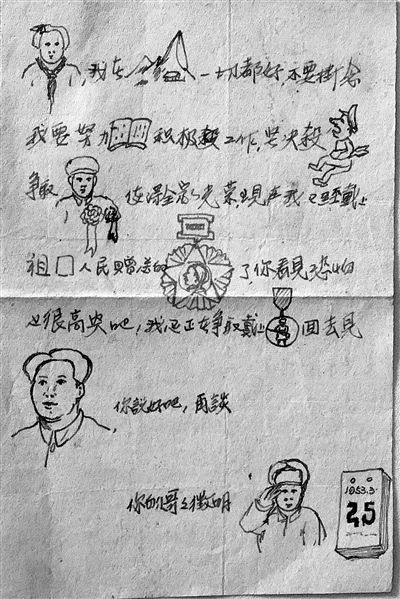 ，我在一切都好，不要掛念
我要努力積极殺工作，坚决殺
爭取使得全家光荣，現在我已经戴上
祖囗人民贈送的了，你看見恐怕
也很高兴吧，我还正在争取戴上回去見
你說好吧，再談
你的哥哥徵明
1953.3.
25